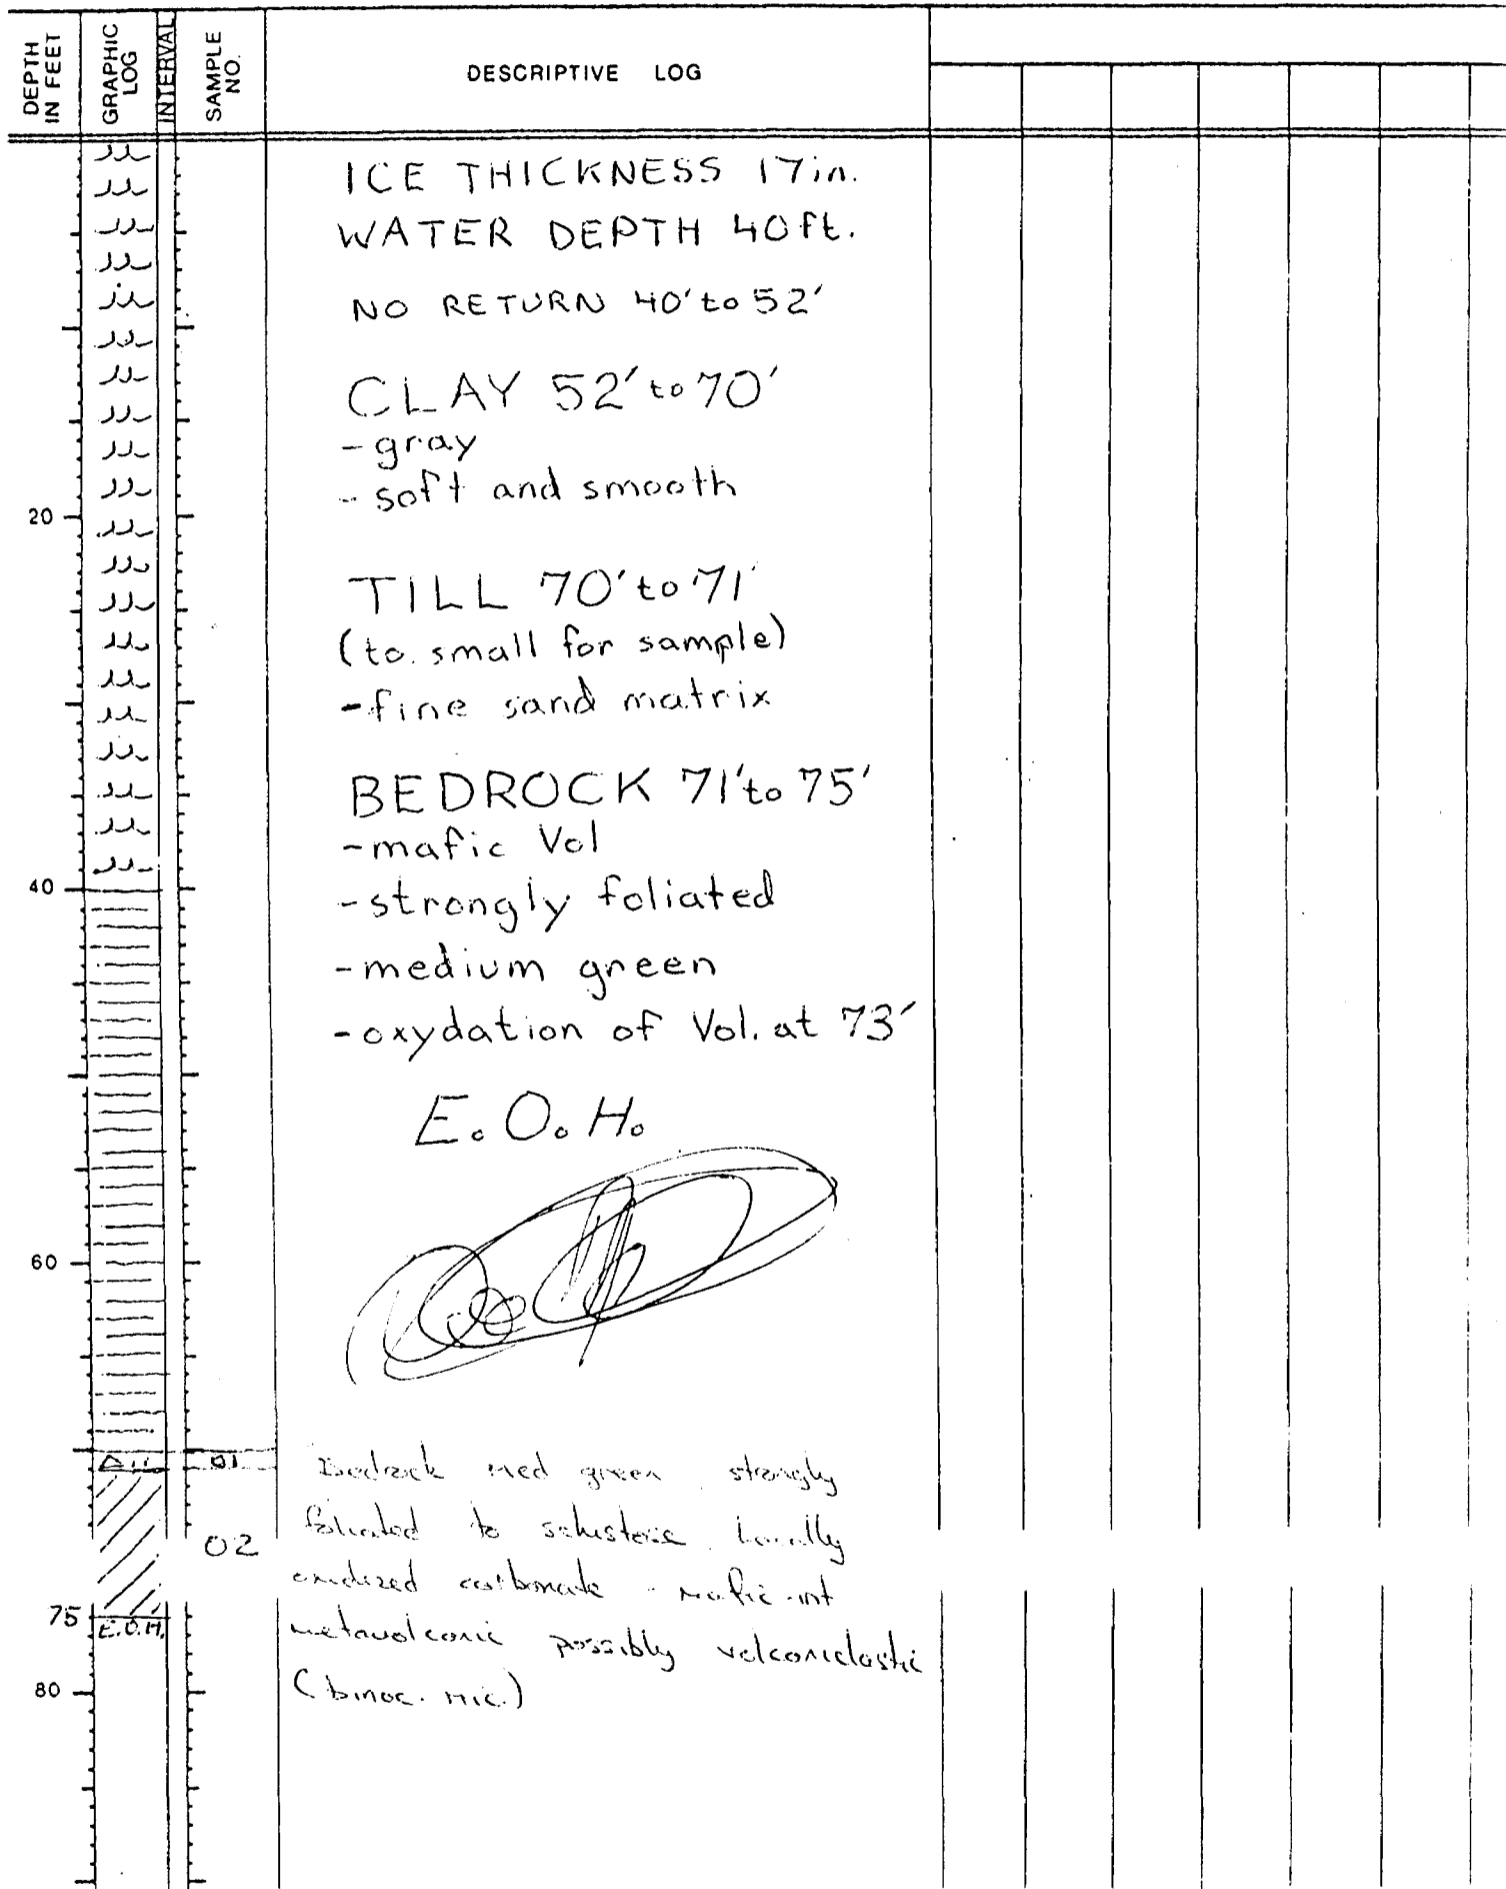 DEPTH IN FEET
GRAPHIC LOG
INTERVAL
SAMPLE NO.
DESCRIPTIVE LOG
ICE THICKNESS 17in.
WATER DEPTH 40ft.
NO RETURN 40' to 52'
CLAY 52' to 70'
-gray
- soft and smooth
20
TILL 70' to 71'
(to small for sample)
-fine sand matrix
BEDROCK 71' to 75'
-mafic Vol
40
-strongly foliated
-medium green
-oxydation of Vol. at 73'
E.O.H.
60
01
Bedrock med green strongly
foliated to schistose locally
02
oxidized carbonate - mafic-int
75
E.O.H.
metavolconic possibly volconiclastic
80
(binoc. mic.)